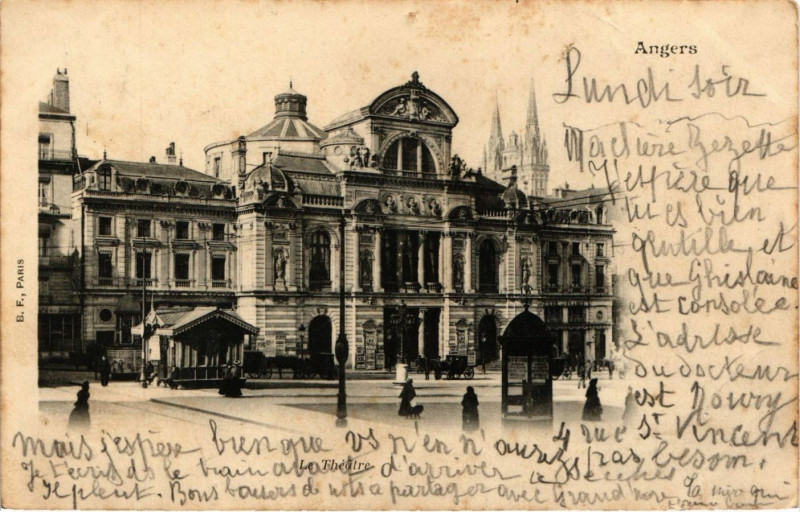 Angers
Lundi soir
Ma chère Zezette
J'espère que
tu es bien
gentille et
que Ghislaine
est consolée.
L'adresse
du docteur
est Noury
4 rue St Vincent
mais j'espère bien que vs n'en n'aurez pas besoin.
Je t'écris ds le train avant d'arriver
Il pleut. Bons baisers de nots à partager avec Grand mère
La
Le Théâtre
B. F., PARIS